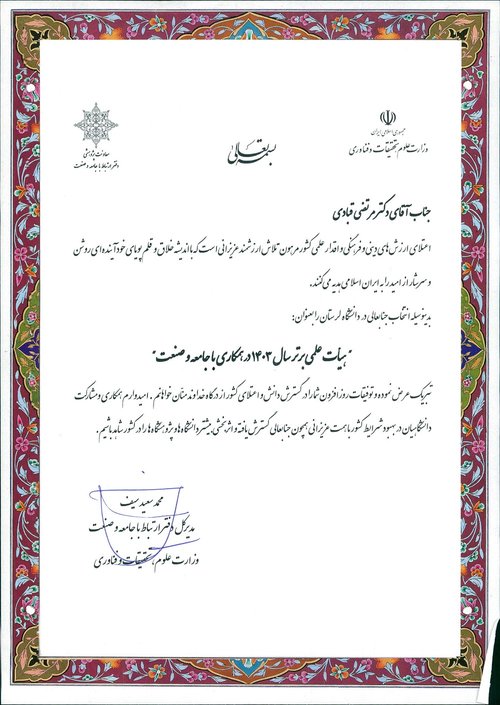 جمهوری اسلامی ایران
وزارت علوم، تحقیقات و فناوری
بسمه تعالی
معاونت پژوهشی
دفتر ارتباط با جامعه و صنعت
جناب آقای دکتر مرتضی قبادی
اعتلای ارزش های دینی و فرهنگی و اقتدار علمی کشور مرهون تلاش ارزشمند عزیزانی است که با اندیشه خلاق و قلم پویای خود آینده ای روشن
و سرشار از امید را به ایران اسلامی هدیه می کنند.
بدینوسیله انتخاب جنابعالی در دانشگاه لرستان را بعنوان:
"هیأت علمی برتر سال ۱۴۰۳ در همکاری با جامعه و صنعت"
تبریک عرض نموده و توفیقات روز افزون شما را در گسترش دانش و اعتلای کشور از درگاه خداوند منان خواهانم. امیدوارم همکاری و مشارکت
دانشگاهیان در بهبود شرایط کشور با همت عزیزانی همچون جنابعالی گسترش یافته و اثربخشی بیشتر دانشگاه ها و پژوهشگاه ها را در کشور شاهد باشیم.
محمد سعید سیف
مدیرکل دفتر ارتباط با جامعه و صنعت
وزارت علوم، تحقیقات و فناوری